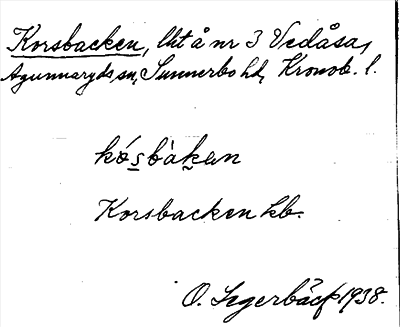 Korsbacken, lht å nr 3 Vedåsa,
Agunnaryds sn, Sunnerbo hd, Kronob. l.
kósbàkan
Korsbacken hb.
O. Segerbäck 1938.